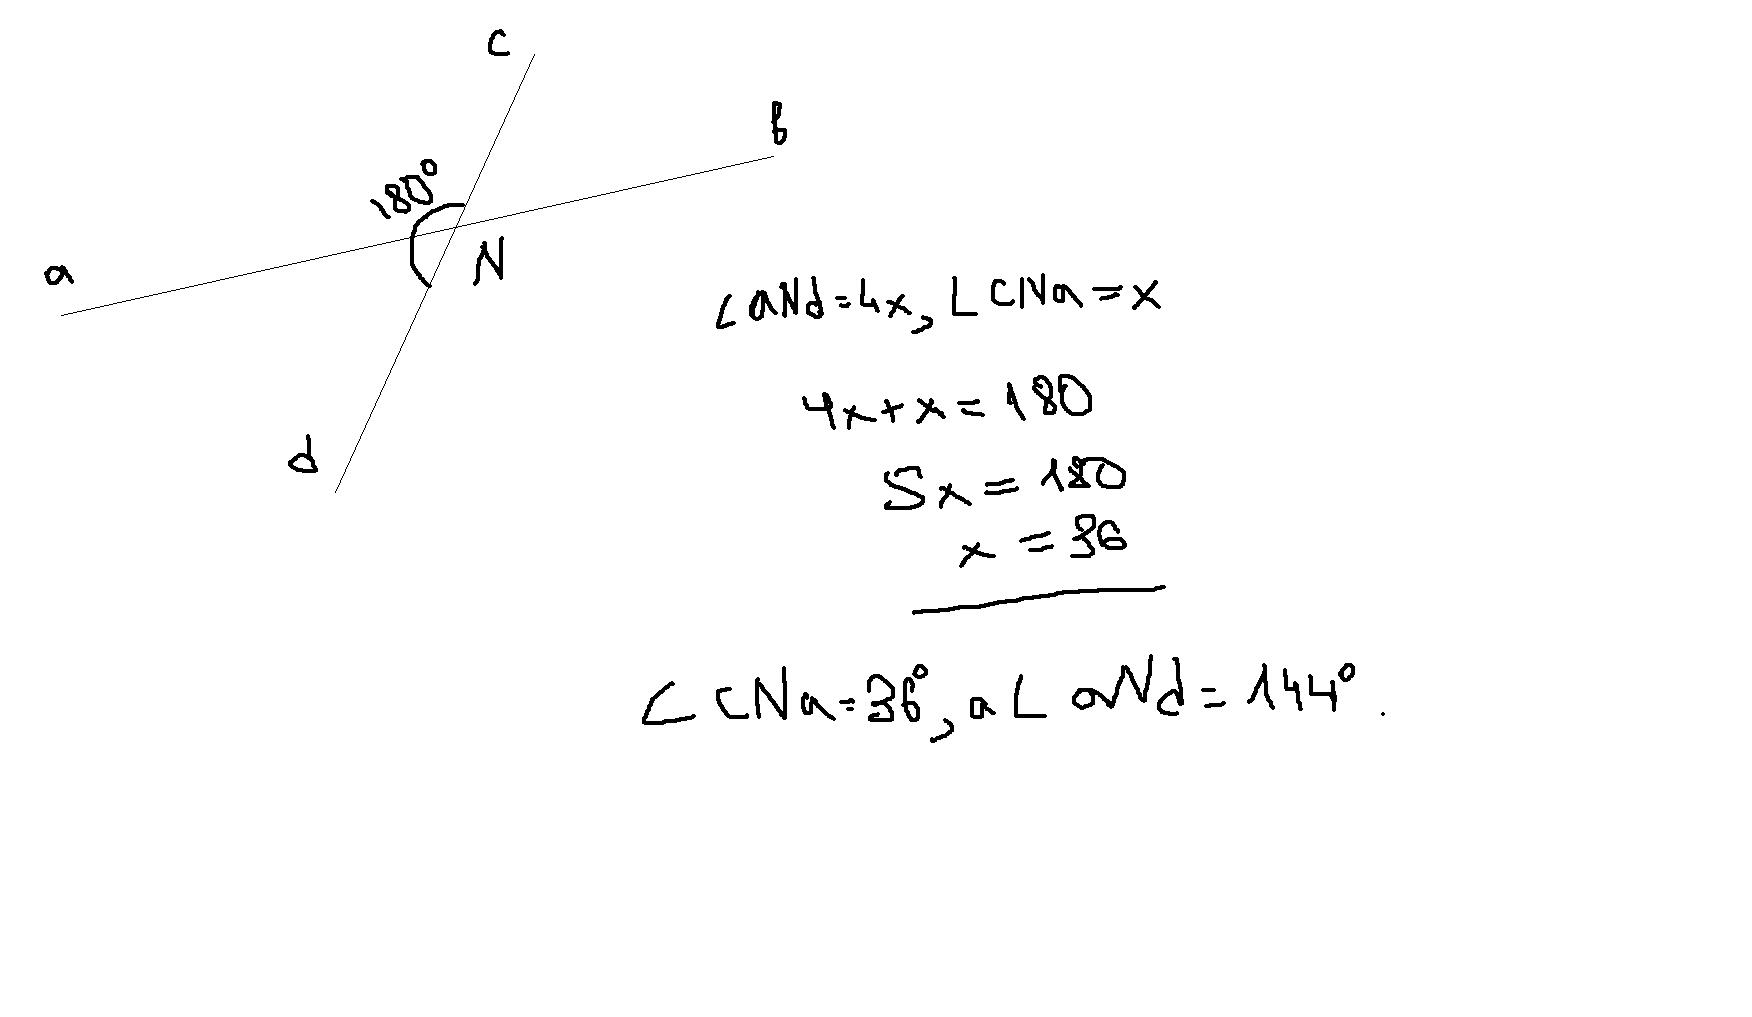 c
b
180°
a
N
d
∠aNd=4x, ∠CNa=x
4x+x=180
5x=180
x=36
∠CNa=36°, a∠aNd=144°.